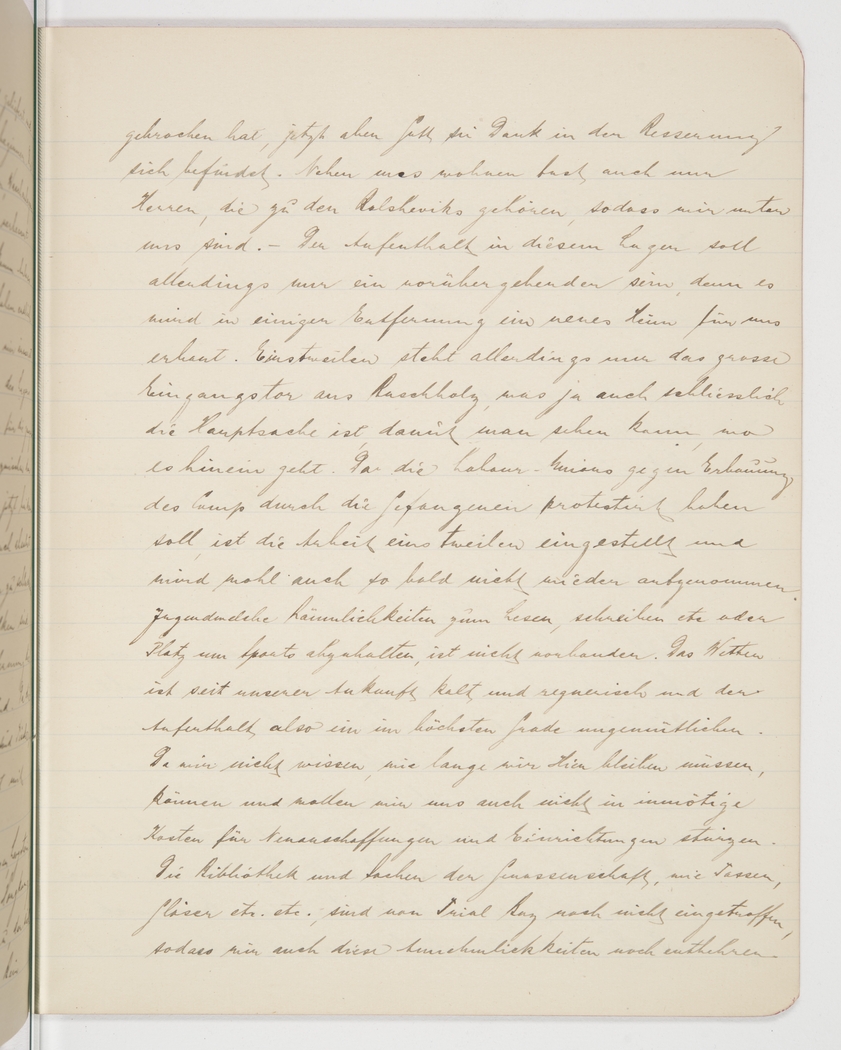 gebrochen hat, jetzt aber Gott sei Dank in der Besserung
sich befindet. Neben uns wohnen fast auch nur
Herren, die zu den Bolsheviks gehören, sodass wir unter
uns sind. – Der Aufenthalt in diesem Lager soll
allerdings nur ein vorübergehender sein, denn es
wird in einiger Entfernung ein neues Heim für uns
erbaut. Einstweilen steht allerdings nur das grosse
Eingangstor aus Buschholz, was ja auch schliesslich
die Hauptsache ist, damit man sehen kann, wo
es hinein geht. Da die Labour-Unions gegen Erbauung
des Camp durch die Gefangenen protestirt haben
soll, ist die Arbeit einstweilen eingestellt und
wird wohl auch so bald nicht wieder aufgenommen.
Irgendwelche Räumlichkeiten zum Lesen, schreiben etc oder
Platz um Sports abzuhalten, ist nicht vorhanden. Das Wetter
ist seit unserer Ankunft kalt und regnerisch und der
Aufenthalt also ein im höchsten Grade ungemütlicher.
Da wir nicht wissen, wie lange wir hier bleiben müssen,
können und wollen wir uns auch nicht in unnötige
Kosten für Neuanschaffungen und Einrichtungen stürzen.
Die Bibliothek und Sachen der Genossenschaft, wie Tassen,
Gläser etc. etc., sind von Trial Bay noch nicht eingetroffen,
sodass wir auch diese Annehmlichkeiten noch entbehren